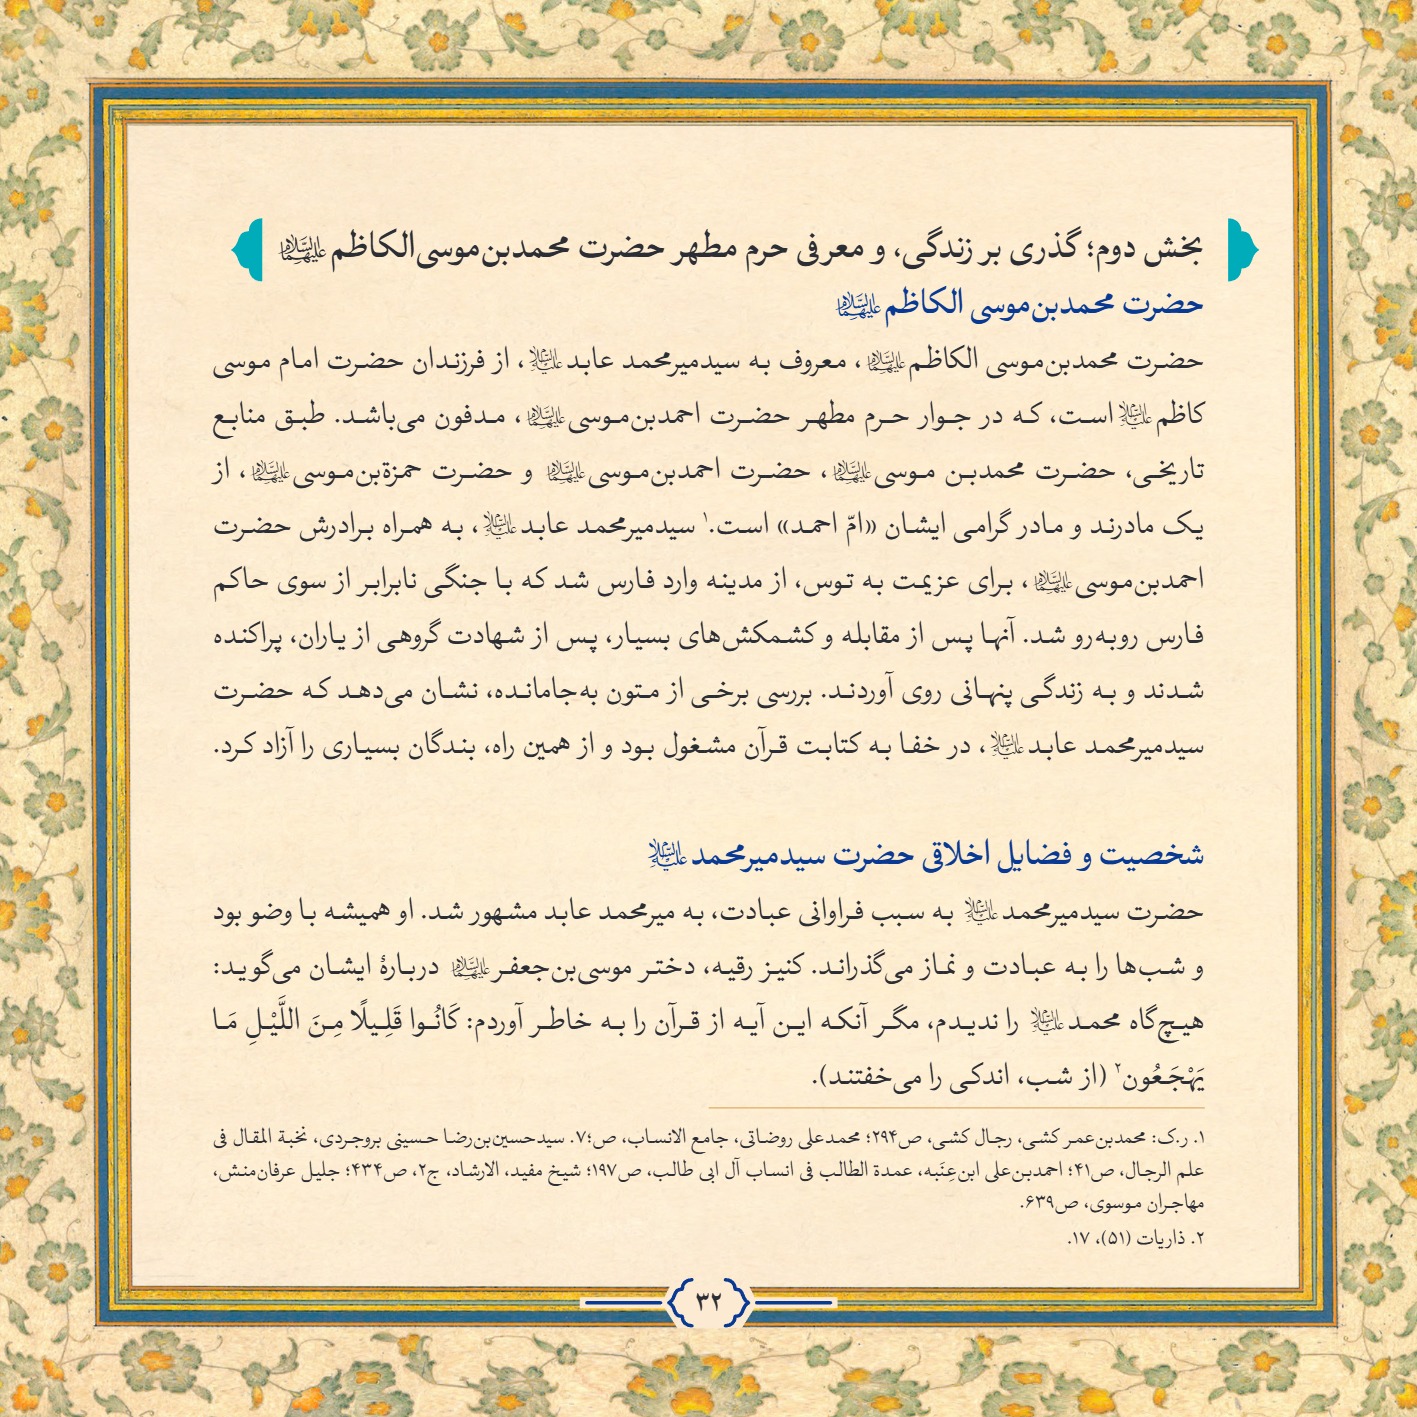 بخش دوم؛ گذری بر زندگی، و معرفی حرم مطهر حضرت محمدبن‌موسی‌الکاظم علیهما السلام
حضرت محمدبن‌موسی الکاظم علیهما السلام
حضرت محمدبن‌موسی الکاظم علیهما السلام، معروف به سیدمیرمحمد عابد علیه السلام، از فرزندان حضرت امام موسی
کاظم علیه السلام است، که در جوار حرم مطهر حضرت احمدبن‌موسی علیهما السلام، مدفون می‌باشد. طبق منابع
تاریخی، حضرت محمدبن موسی علیهما السلام، حضرت احمدبن‌موسی علیهما السلام و حضرت حمزةبن‌موسی علیهما السلام، از
یک مادرند و مادر گرامی ایشان «امّ احمد» است.۱ سیدمیرمحمد عابد علیه السلام، به همراه برادرش حضرت
احمدبن‌موسی علیهما السلام، برای عزیمت به توس، از مدینه وارد فارس شد که با جنگی نابرابر از سوی حاکم
فارس روبه‌رو شد. آنها پس از مقابله و کشمکش‌های بسیار، پس از شهادت گروهی از یاران، پراکنده
شدند و به زندگی پنهانی روی آوردند. بررسی برخی از متون به‌جامانده، نشان می‌دهد که حضرت
سیدمیرمحمد عابد علیه السلام، در خفا به کتابت قرآن مشغول بود و از همین راه، بندگان بسیاری را آزاد کرد.
شخصیت و فضایل اخلاقی حضرت سیدمیرمحمد علیه السلام
حضرت سیدمیرمحمد علیه السلام به سبب فراوانی عبادت، به میرمحمد عابد مشهور شد. او همیشه با وضو بود
و شب‌ها را به عبادت و نماز می‌گذراند. کنیز رقیه، دختر موسی‌بن‌جعفر علیهما السلام دربارهٔ ایشان می‌گوید:
هیچ‌گاه محمد علیه السلام را ندیدم، مگر آنکه این آیه از قرآن را به خاطر آوردم: کَانُوا قَلِیلًا مِنَ اللَّیْلِ مَا
یَهْجَعُون۲ (از شب، اندکی را می‌خفتند).
۱. ر.ک: محمدبن‌عمر کشی، رجال کشی، ص۲۹۴؛ محمدعلی روضاتی، جامع الانساب، ص؛۷. سیدحسین‌بن‌رضا حسینی بروجردی، نخبة المقال فی
علم الرجال، ص۴۱؛ احمدبن‌علی ابن‌عِنَبه، عمدة الطالب فی انساب آل ابی طالب، ص۱۹۷؛ شیخ مفید، الارشاد، ج۲، ص۴۳۴؛ جلیل عرفان‌منش،
مهاجران موسوی، ص۶۳۹.
۲. ذاریات (۵۱)، ۱۷.
۳۲